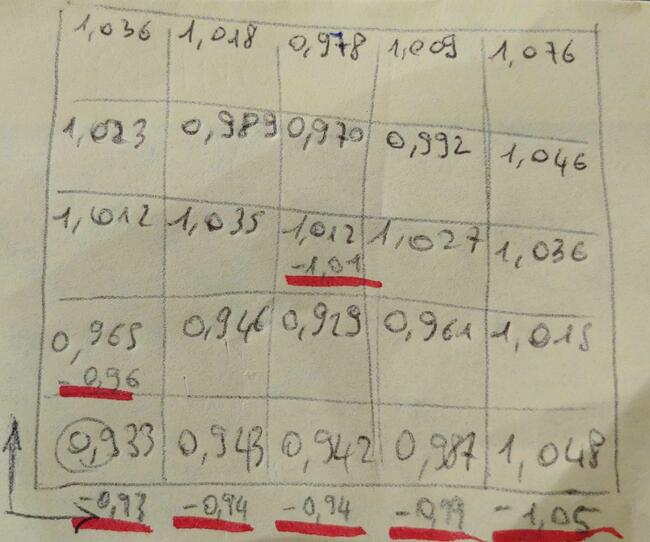 1,036 1,018 0,978 1,009 1,076
1,023 0,989 0,970 0,992 1,046
1,012 1,035 1,012 1,027 1,036
-1,01
0,965 0,946 0,929 0,961 1,015
-0,96
0,933 0,943 0,942 0,987 1,048
-0,93 -0,94 -0,94 -0,99 -1,05